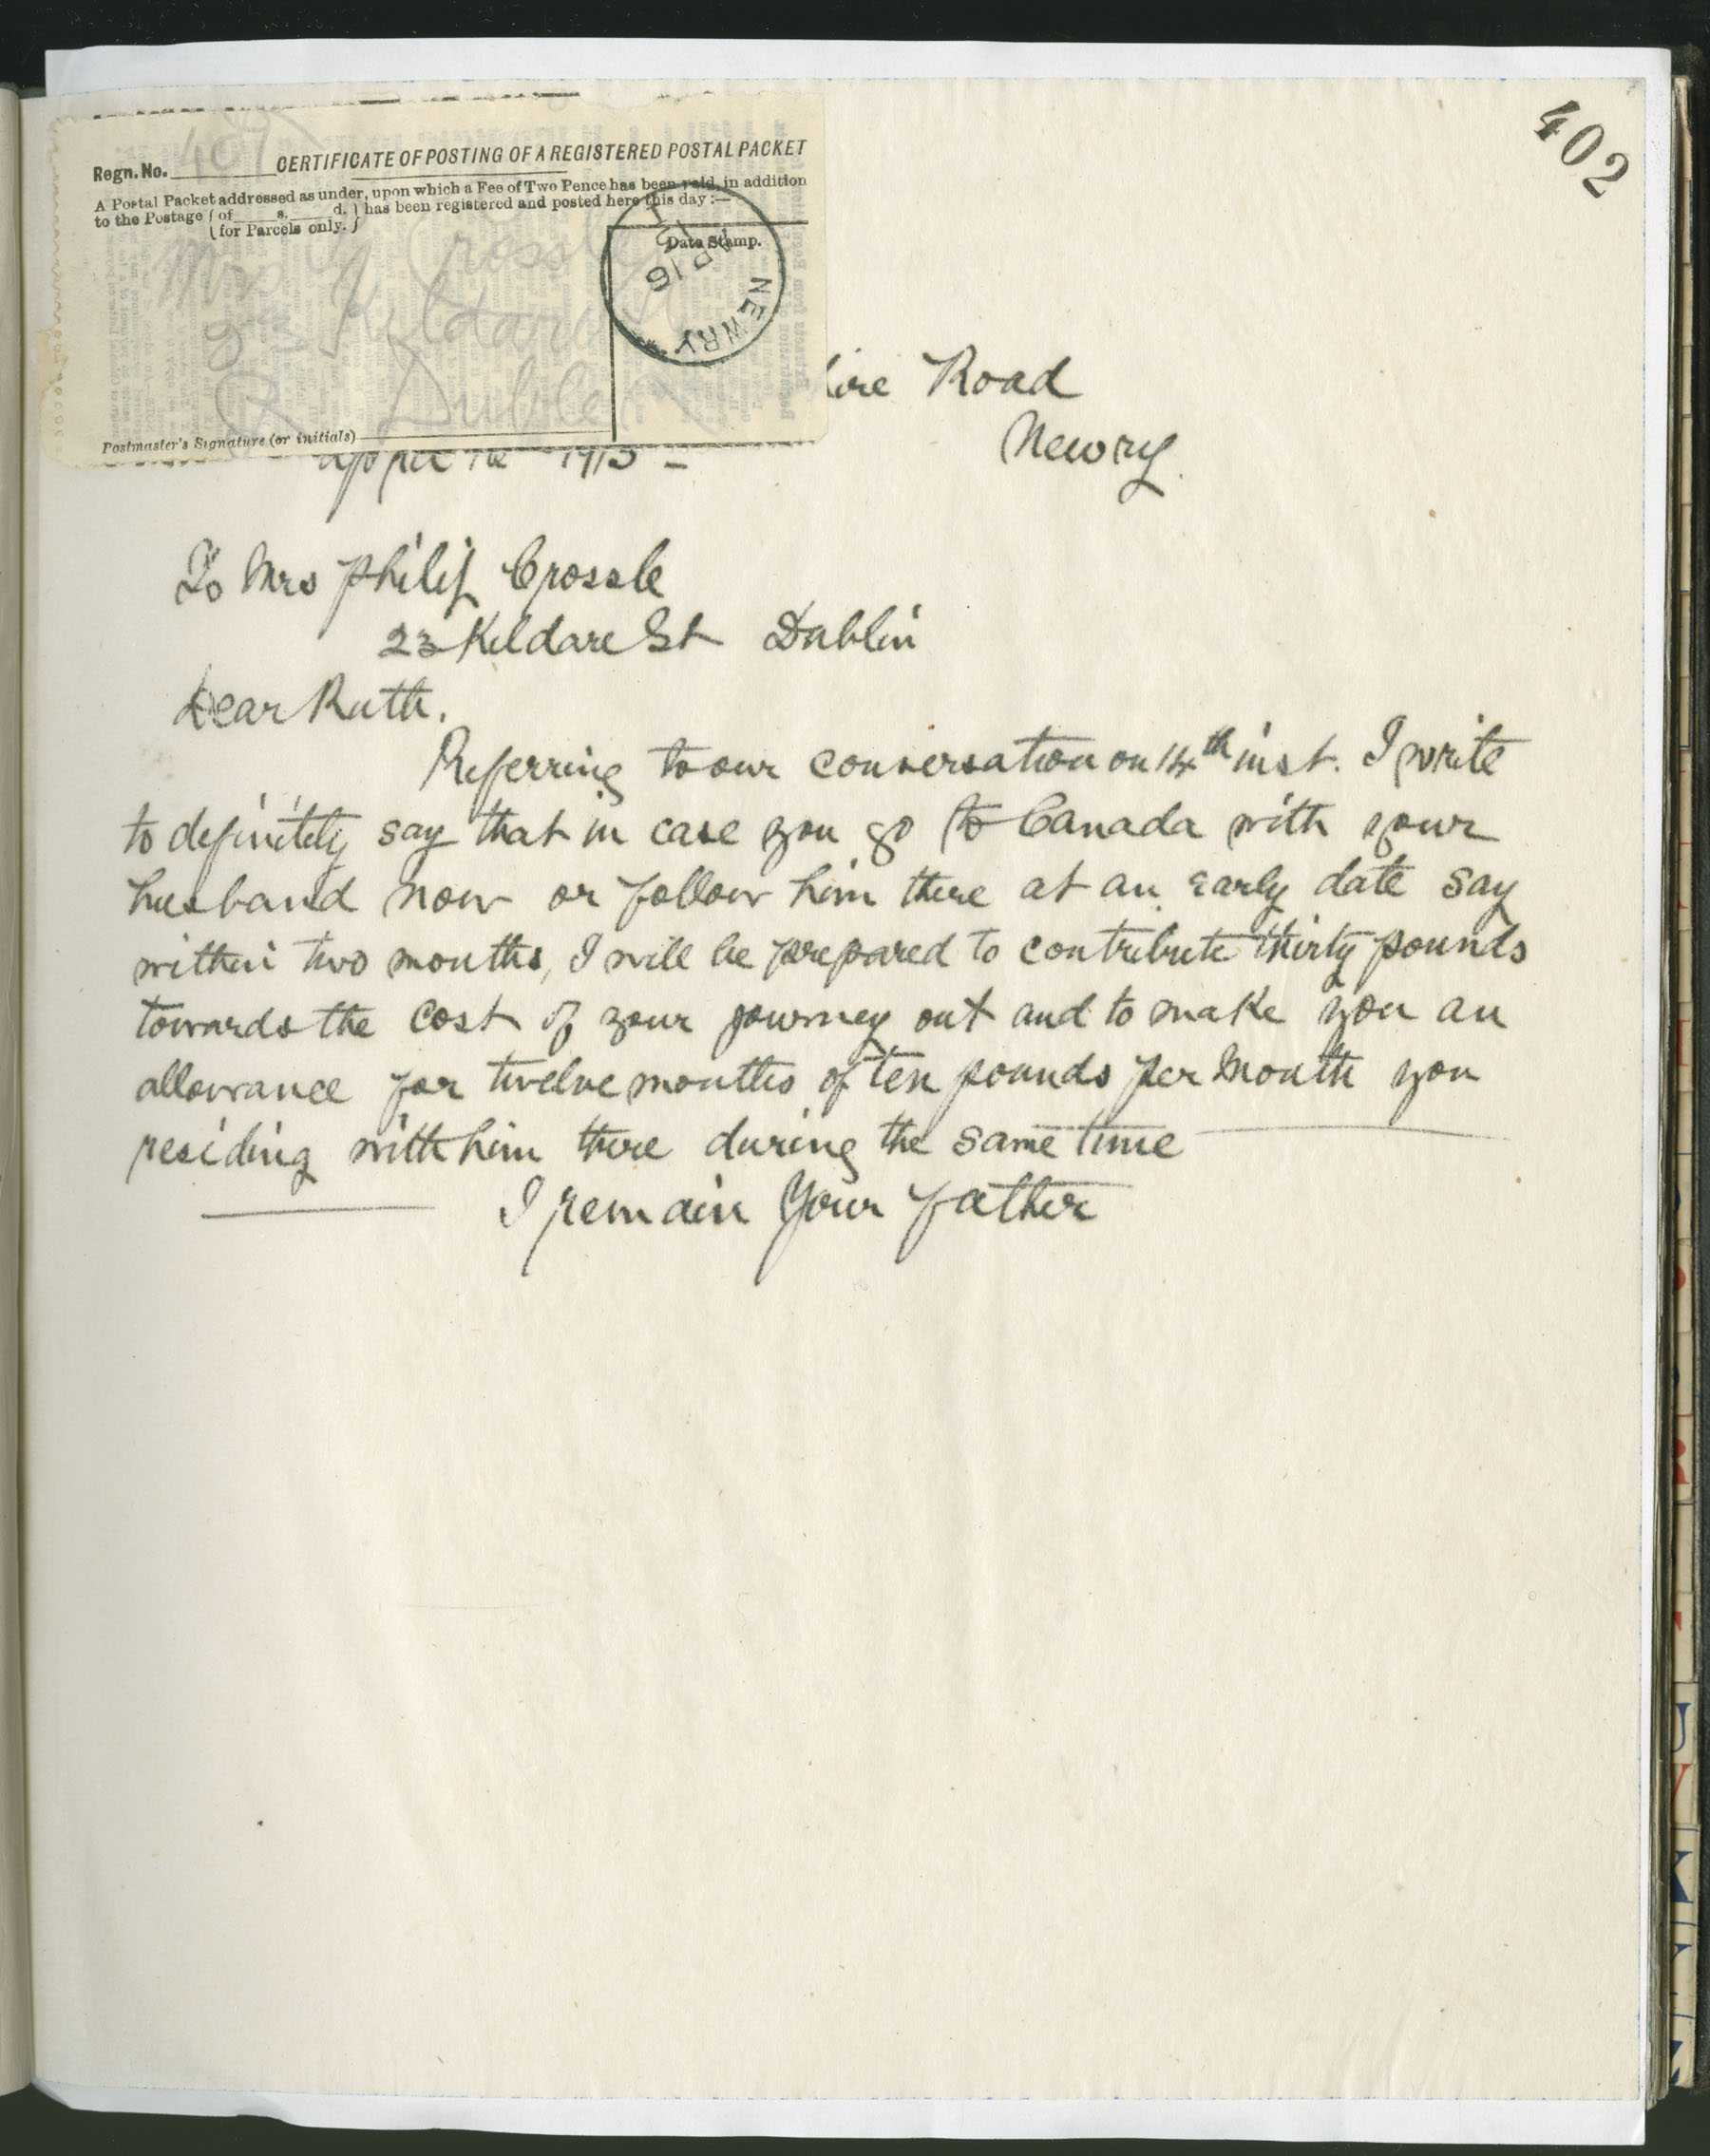 402
Regn. No. CERTIFICATE OF POSTING OF A REGISTERED POSTAL PACKET
A Postal Packet addressed as under, upon which a Fee of Two Pence has been paid, in addition
to the Postage { of s. d. } has been registered and posted here this day:—
{ for Parcels only. }
Date Stamp.
NEWRY
AP 16
Mrs P Crossle
23 Kildare St
Dublin
Postmaster's Signature (or initials)
Road
Newry.
April 16 1913 -
To Mrs Philip Crossle
23 Kildare St Dublin
Dear Ruth.
Referring to our conversation on 14th inst. I write
to definitely say that in case you go to Canada with your
husband now or follow him there at an early date say
within two months, I will be prepared to contribute thirty pounds
towards the cost of your journey out and to make you an
allowance for twelve months of ten pounds per month you
residing with him there during the same time
I remain Your father